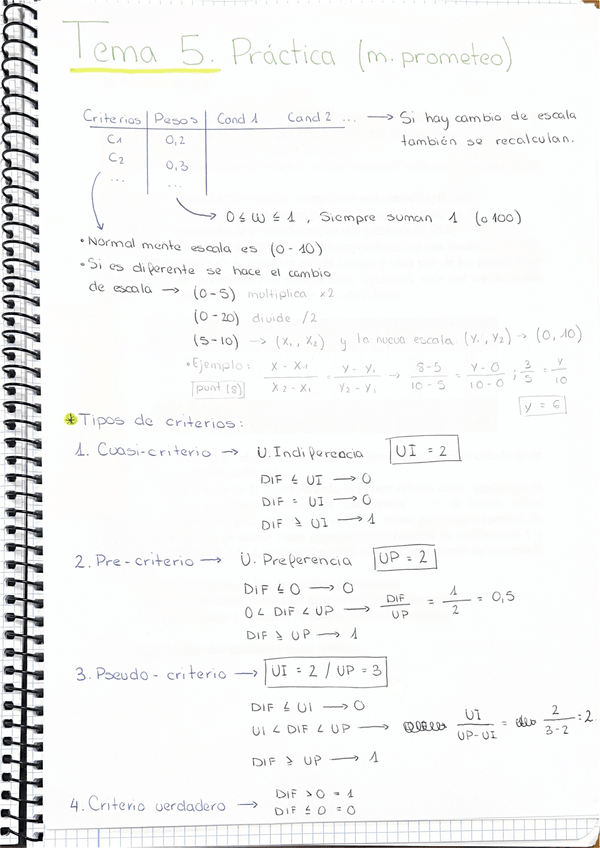 Tema 5. Práctica (m. prometeo)
Criterios Pesos Cond 1 Cand 2 ... → Si hay cambio de escala
también se recalculan.
C1 0,2
C2 0,3
... ...
0 ≤ W ≤ 1, Siempre suman 1 (o 100)
• Normalmente escala es (0-10)
• Si es diferente se hace el cambio
de escala → (0-5) multiplica x2
(0-20) divide /2
(5-10) → (x₁, x₂) y la nueva escala (y₁, y₂) → (0, 10)
• Ejemplo: punt (8) (x - x₁)/(x₂ - x₁) = (y - y₁)/(y₂ - y₁) → (8-5)/(10-5) = (y-0)/(10-0) ; 3/5 = y/10
y = 6
* Tipos de criterios:
1. Cuasi-criterio → U. Indiferencia UI = 2
DIF ≤ UI → 0
DIF = UI → 0
DIF ≥ UI → 1
2. Pre-criterio → U. Preferencia UP = 2
DIF ≤ 0 → 0
0 < DIF < UP → DIF/UP = 1/2 = 0,5
DIF ≥ UP → 1
3. Pseudo-criterio → UI = 2 / UP = 3
DIF ≤ UI → 0
UI < DIF < UP → UI/(UP-UI) = 2/(3-2) = 2
DIF ≥ UP → 1
4. Criterio verdadero → DIF > 0 = 1
DIF ≤ 0 = 0